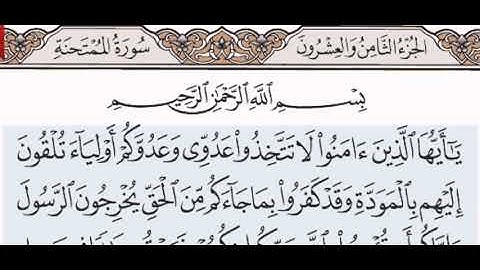 الجُزْءُ الثَّامِنُ وَالعِشْرُونَ
سُورَةُ المُمْتَحنَةِ
بِسْمِ ٱللَّهِ ٱلرَّحْمَٰنِ ٱلرَّحِيمِ
يَٰٓأَيُّهَا ٱلَّذِينَ ءَامَنُوا۟ لَا تَتَّخِذُوا۟ عَدُوِّى وَعَدُوَّكُمْ أَوْلِيَآءَ تُلْقُونَ
إِلَيْهِم بِٱلْمَوَدَّةِ وَقَدْ كَفَرُوا۟ بِمَا جَآءَكُم مِّنَ ٱلْحَقِّ يُخْرِجُونَ ٱلرَّسُولَ